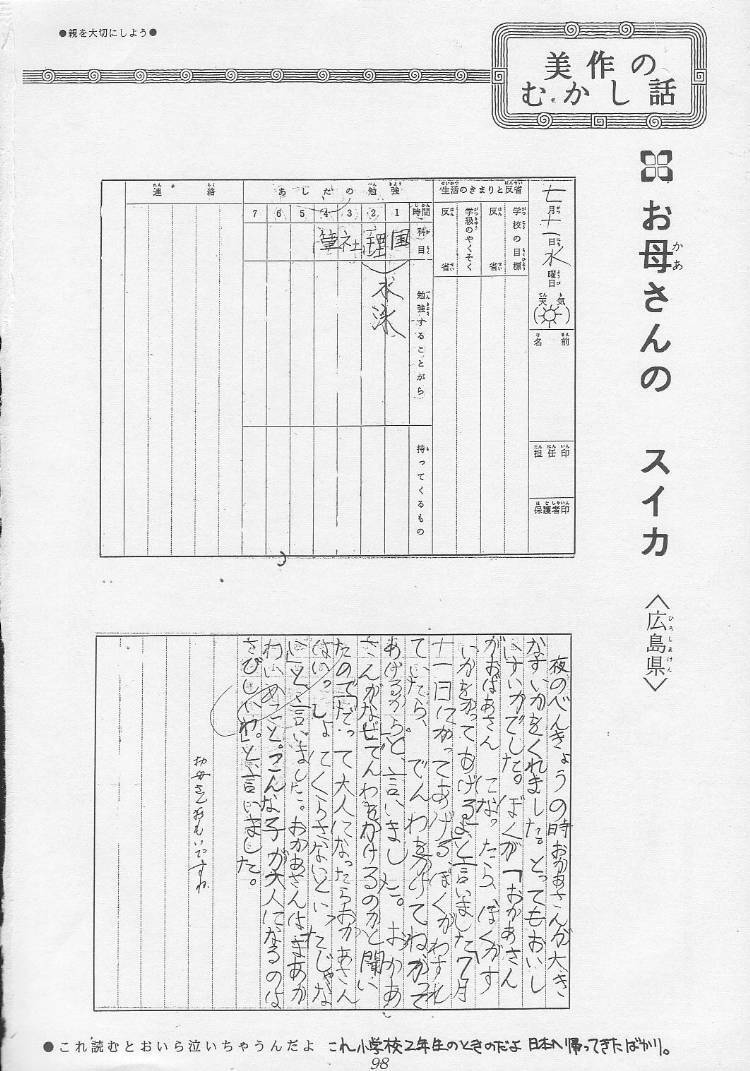 ●親を大切にしよう●
美作の
むかし話
お母さんの スイカ
〈広島県〉
七月十一日水曜日
天気
名前
担任印
保護者印
生活のきまりと反省
学校の目標
反省
学級のやくそく
反省
あしたの勉強
時間 1 2 3 4 5 6 7
科目 国 理 社
勉強することがら
水泳
持ってくるもの
連絡
夜のべんきょうの時おかあさんが大き
なすいかをくれました。とってもおいし
いすいかでした。ぼくが「おかあさん
がおばあさんになったら、ぼくがす
いかをかってあげるよ」と言いました7月
十一日にかってあげるぼくがわすれ
ていたら、でんわをかけてね、かって
あげるから」と、言いました。おかあ
さんがなぜでんわをかけるのかと聞い
たので「だって大人になったらおかあさん
はいっしょにくらさないといったじゃな
い」と言いました。おかあさんは「まあか
わいいこと。こんな子が大人になるのは
さびしいわ。」と、言いました。
お母さんおもいですね
●これ読むとおいら泣いちゃうんだよ これ小学校2年生のときのだよ 日本へ帰ってきたばかり。
98